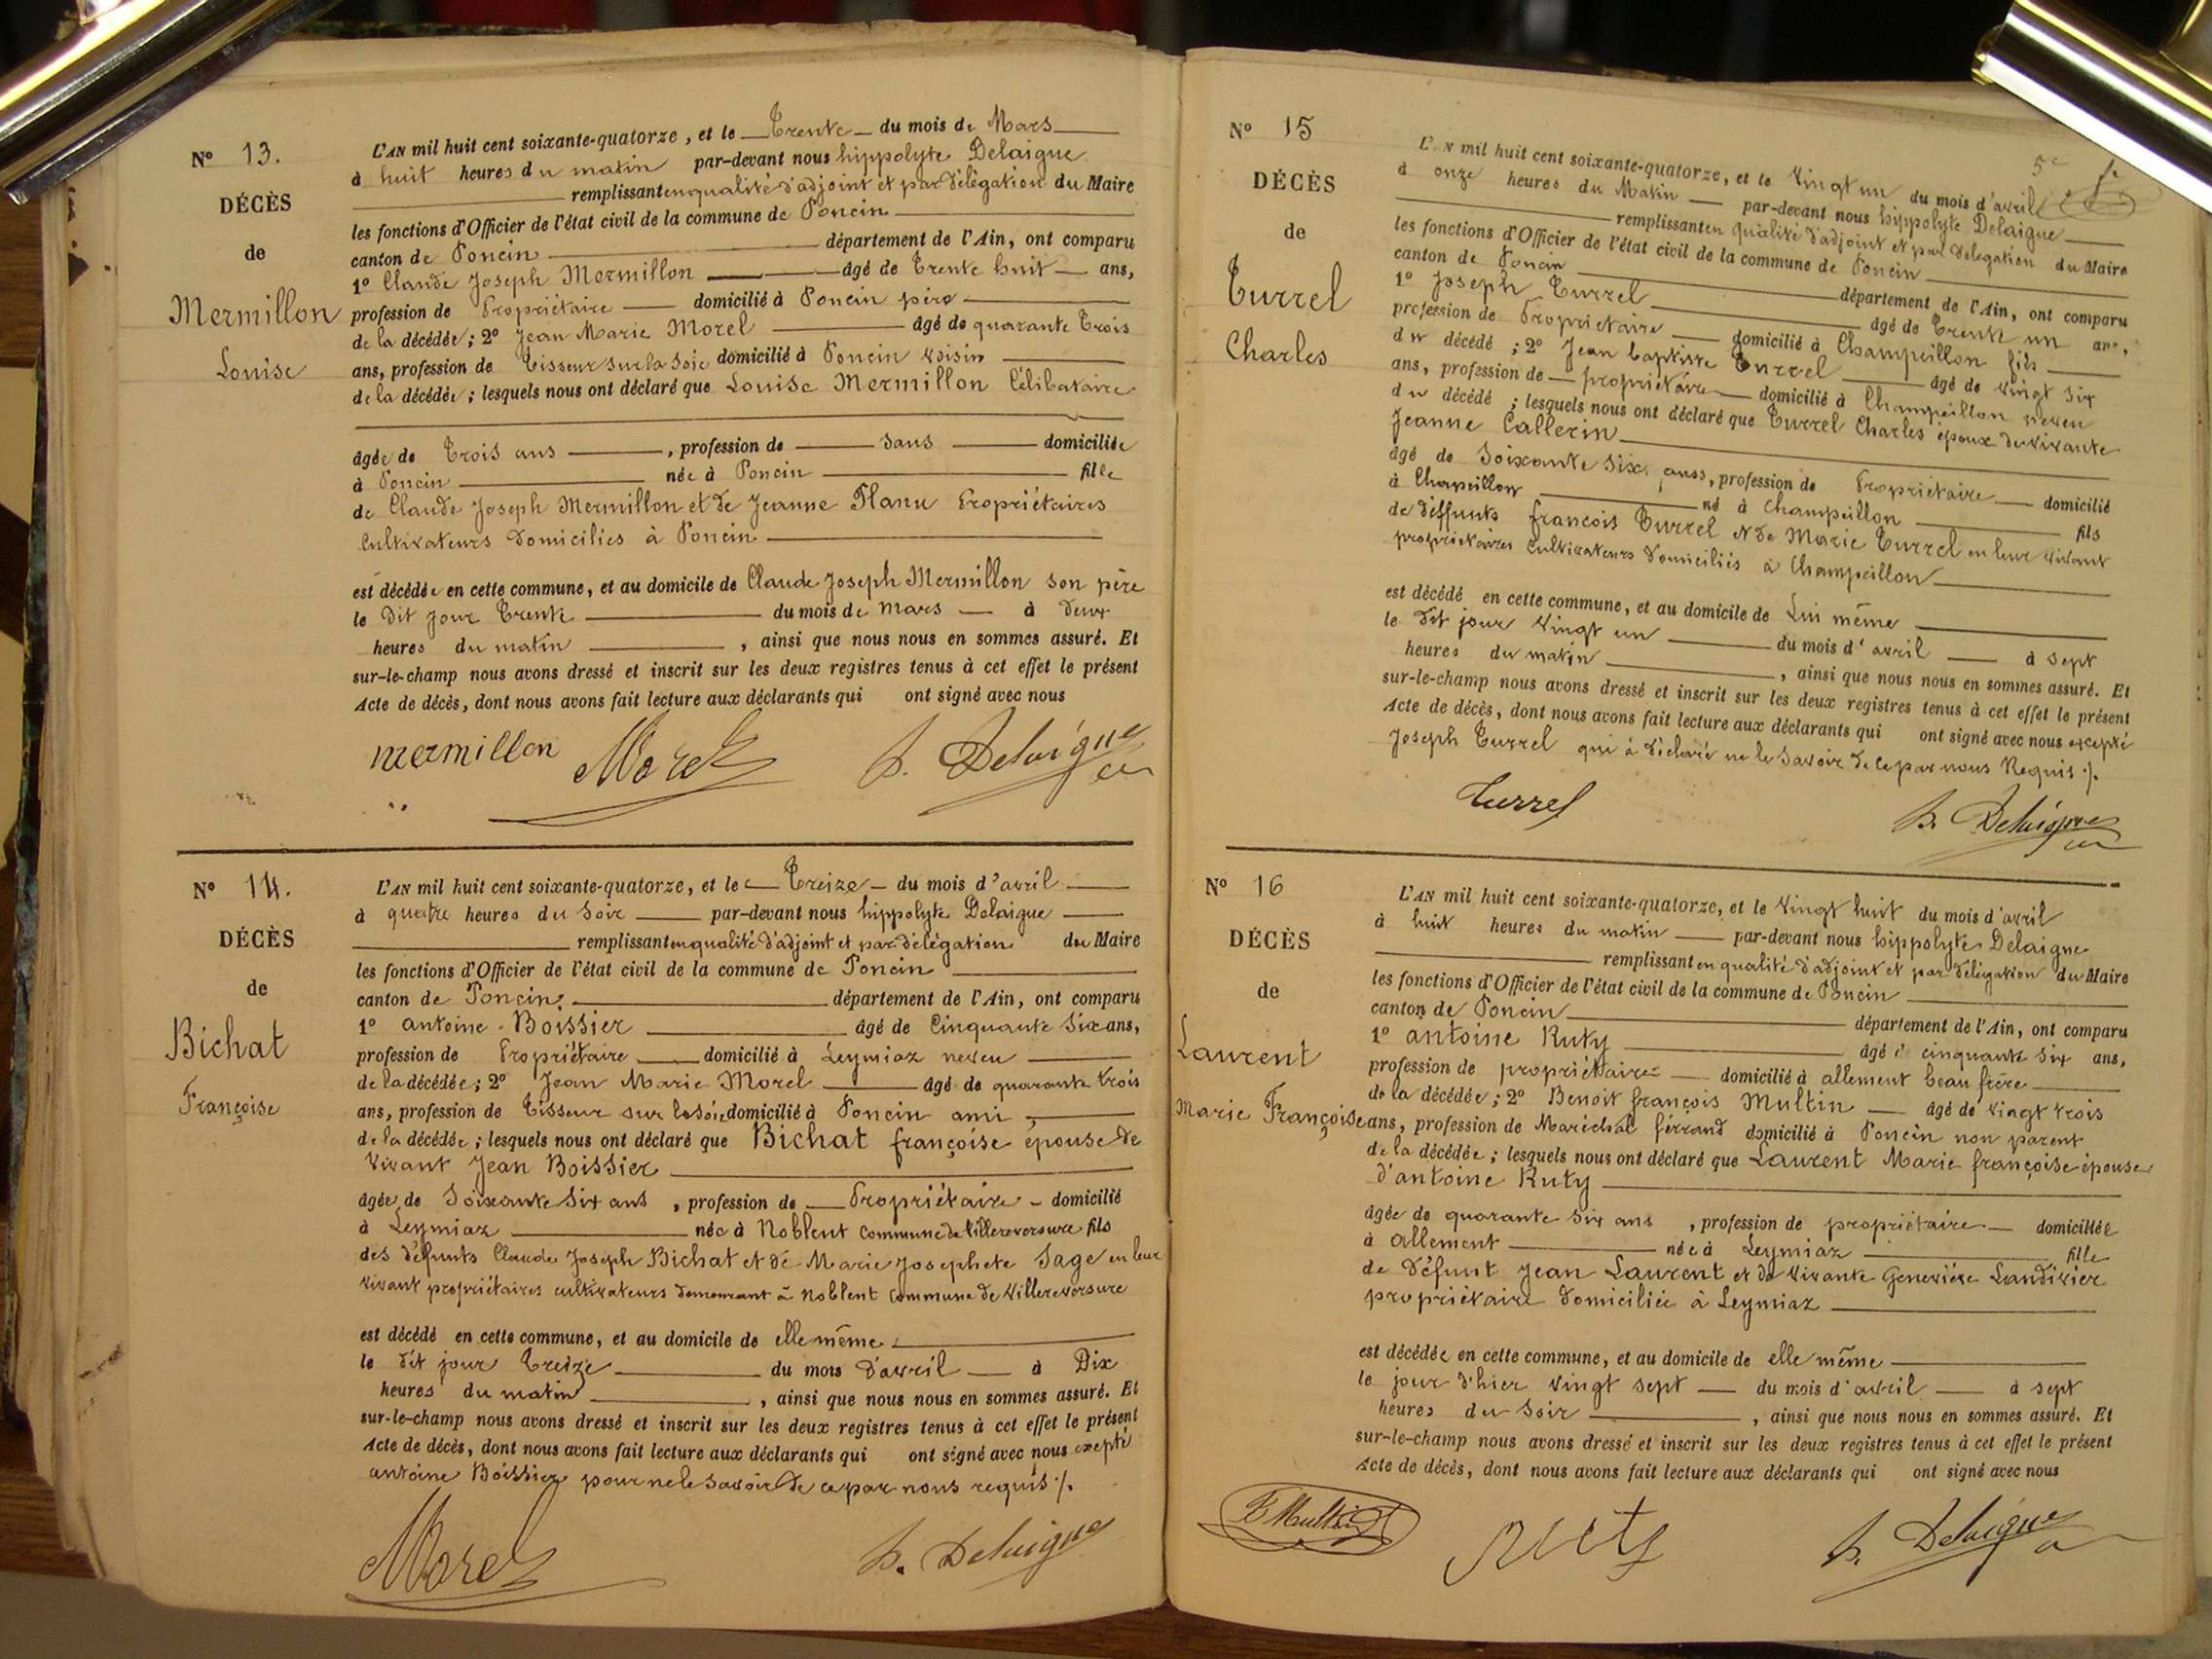 N° 13.
DÉCÈS
de
Mermillon
Louise
L'AN mil huit cent soixante-quatorze, et le Trente du mois de Mars
à huit heures du matin par-devant nous hippolyte Delaigue
remplissant en qualité d'adjoint et par délégation du Maire
les fonctions d'Officier de l'état civil de la commune de Poncin
canton de Poncin département de l'Ain, ont comparu
1° Claude Joseph Mermillon âgé de Trente huit ans,
profession de Propriétaire domicilié à Poncin père
de la décédée; 2° Jean Marie Morel âgé de quarante Trois
ans, profession de Tisseur sur la Soie domicilié à Poncin voisin
de la décédée; lesquels nous ont déclaré que Louise Mermillon Célibataire
âgée de Trois ans, profession de sans domiciliée
à Poncin née à Poncin fille
de Claude Joseph Mermillon et de Jeanne Planu Propriétaires
Cultivateurs domiciliés à Poncin
est décédée en cette commune, et au domicile de Claude Joseph Mermillon son père
le dit jour Trente du mois de mars à deux
heures du matin, ainsi que nous nous en sommes assuré. Et
sur-le-champ nous avons dressé et inscrit sur les deux registres tenus à cet effet le présent
Acte de décès, dont nous avons fait lecture aux déclarants qui ont signé avec nous
mermillon Morel h. Delaigue
N° 14.
DÉCÈS
de
Bichat
Françoise
L'AN mil huit cent soixante-quatorze, et le Treize du mois d'avril
à quatre heures du Soir par-devant nous hippolyte Delaigue
remplissant en qualité d'adjoint et par délégation du Maire
les fonctions d'Officier de l'état civil de la commune de Poncin
canton de Poncin département de l'Ain, ont comparu
1° antoine Boissier âgé de Cinquante Six ans,
profession de Propriétaire domicilié à Leymiaz neveu
de la décédée; 2° Jean Marie Morel âgé de quarante trois
ans, profession de Tisseur sur la Soie domicilié à Poncin ami
de la décédée; lesquels nous ont déclaré que Bichat françoise épouse de
vivant Jean Boissier
âgée de Soixante Six ans, profession de Propriétaire domicilié
à Leymiaz née à Noblent Commune de Villereversure fils
des défunts Claude Joseph Bichat et de Marie Josephete Sage en leur
vivant propriétaires cultivateurs demeurant à Noblent Commune de Villereversure
est décédé en cette commune, et au domicile de elle même
le dit jour Treize du mois d'avril à Dix
heures du matin, ainsi que nous nous en sommes assuré. Et
sur-le-champ nous avons dressé et inscrit sur les deux registres tenus à cet effet le présent
Acte de décès, dont nous avons fait lecture aux déclarants qui ont signé avec nous excepté
antoine Boissier pour ne le Savoir de ce par nous requis ./.
Morel h. Delaigue
N° 15
DÉCÈS
de
Turrel
Charles
5e
L'AN mil huit cent soixante-quatorze, et le Vingt un du mois d'avril
à onze heures du Matin par-devant nous hippolyte Delaigue
remplissant en qualité d'adjoint et par délégation du Maire
les fonctions d'Officier de l'état civil de la commune de Poncin
canton de Poncin département de l'Ain, ont comparu
1° Joseph Turrel âgé de Trente un ans,
profession de Propriétaire domicilié à Champeillon fils
du décédé; 2° Jean baptiste Turrel âgé de Vingt Six
ans, profession de propriétaire domicilié à Champeillon neveu
du décédé; lesquels nous ont déclaré que Turrel Charles époux de vivante
Jeanne Callerin
âgé de Soixante Six anss, profession de Propriétaire domicilié
à Chapeillon né à Champeillon fils
de déffunts françois Turrel et de Marie Turrel en leur vivant
propriétaires cultivateurs domiciliés à Champeillon
est décédé en cette commune, et au domicile de Lui même
le dit jour Vingt un du mois d'avril à sept
heures du matin, ainsi que nous nous en sommes assuré. Et
sur-le-champ nous avons dressé et inscrit sur les deux registres tenus à cet effet le présent
Acte de décès, dont nous avons fait lecture aux déclarants qui ont signé avec nous excepté
Joseph Turrel qui à déclaré ne le Savoir de ce par nous Requis ./.
Turrel h. Delaigue
N° 16
DÉCÈS
de
Laurent
Marie Françoise
L'AN mil huit cent soixante-quatorze, et le Vingt huit du mois d'avril
à huit heures du matin par-devant nous hippolyte Delaigue
remplissant en qualité d'adjoint et par délégation du Maire
les fonctions d'Officier de l'état civil de la commune de Poncin
canton de Poncin département de l'Ain, ont comparu
1° antoine Ruty âgé de cinquante Six ans,
profession de propriétaire domicilié à allement beau frère
de la décédée; 2° Benoit françois Multin âgé de vingt trois
ans, profession de Maréchal férrand domicilié à Poncin non parent
de la décédée; lesquels nous ont déclaré que Laurent Marie françoise épouse
d'antoine Ruty
âgée de quarante Six ans, profession de propriétaire domiciliée
à allement née à Leymiaz fille
de défunt Jean Laurent et de vivante Geneviève Landivier
propriétaire domiciliée à Leymiaz
est décédée en cette commune, et au domicile de elle même
le jour d'hier vingt sept du mois d'avril à sept
heures du Soir, ainsi que nous nous en sommes assuré. Et
sur-le-champ nous avons dressé et inscrit sur les deux registres tenus à cet effet le présent
Acte de décès, dont nous avons fait lecture aux déclarants qui ont signé avec nous
B Multin Ruty h. Delaigue